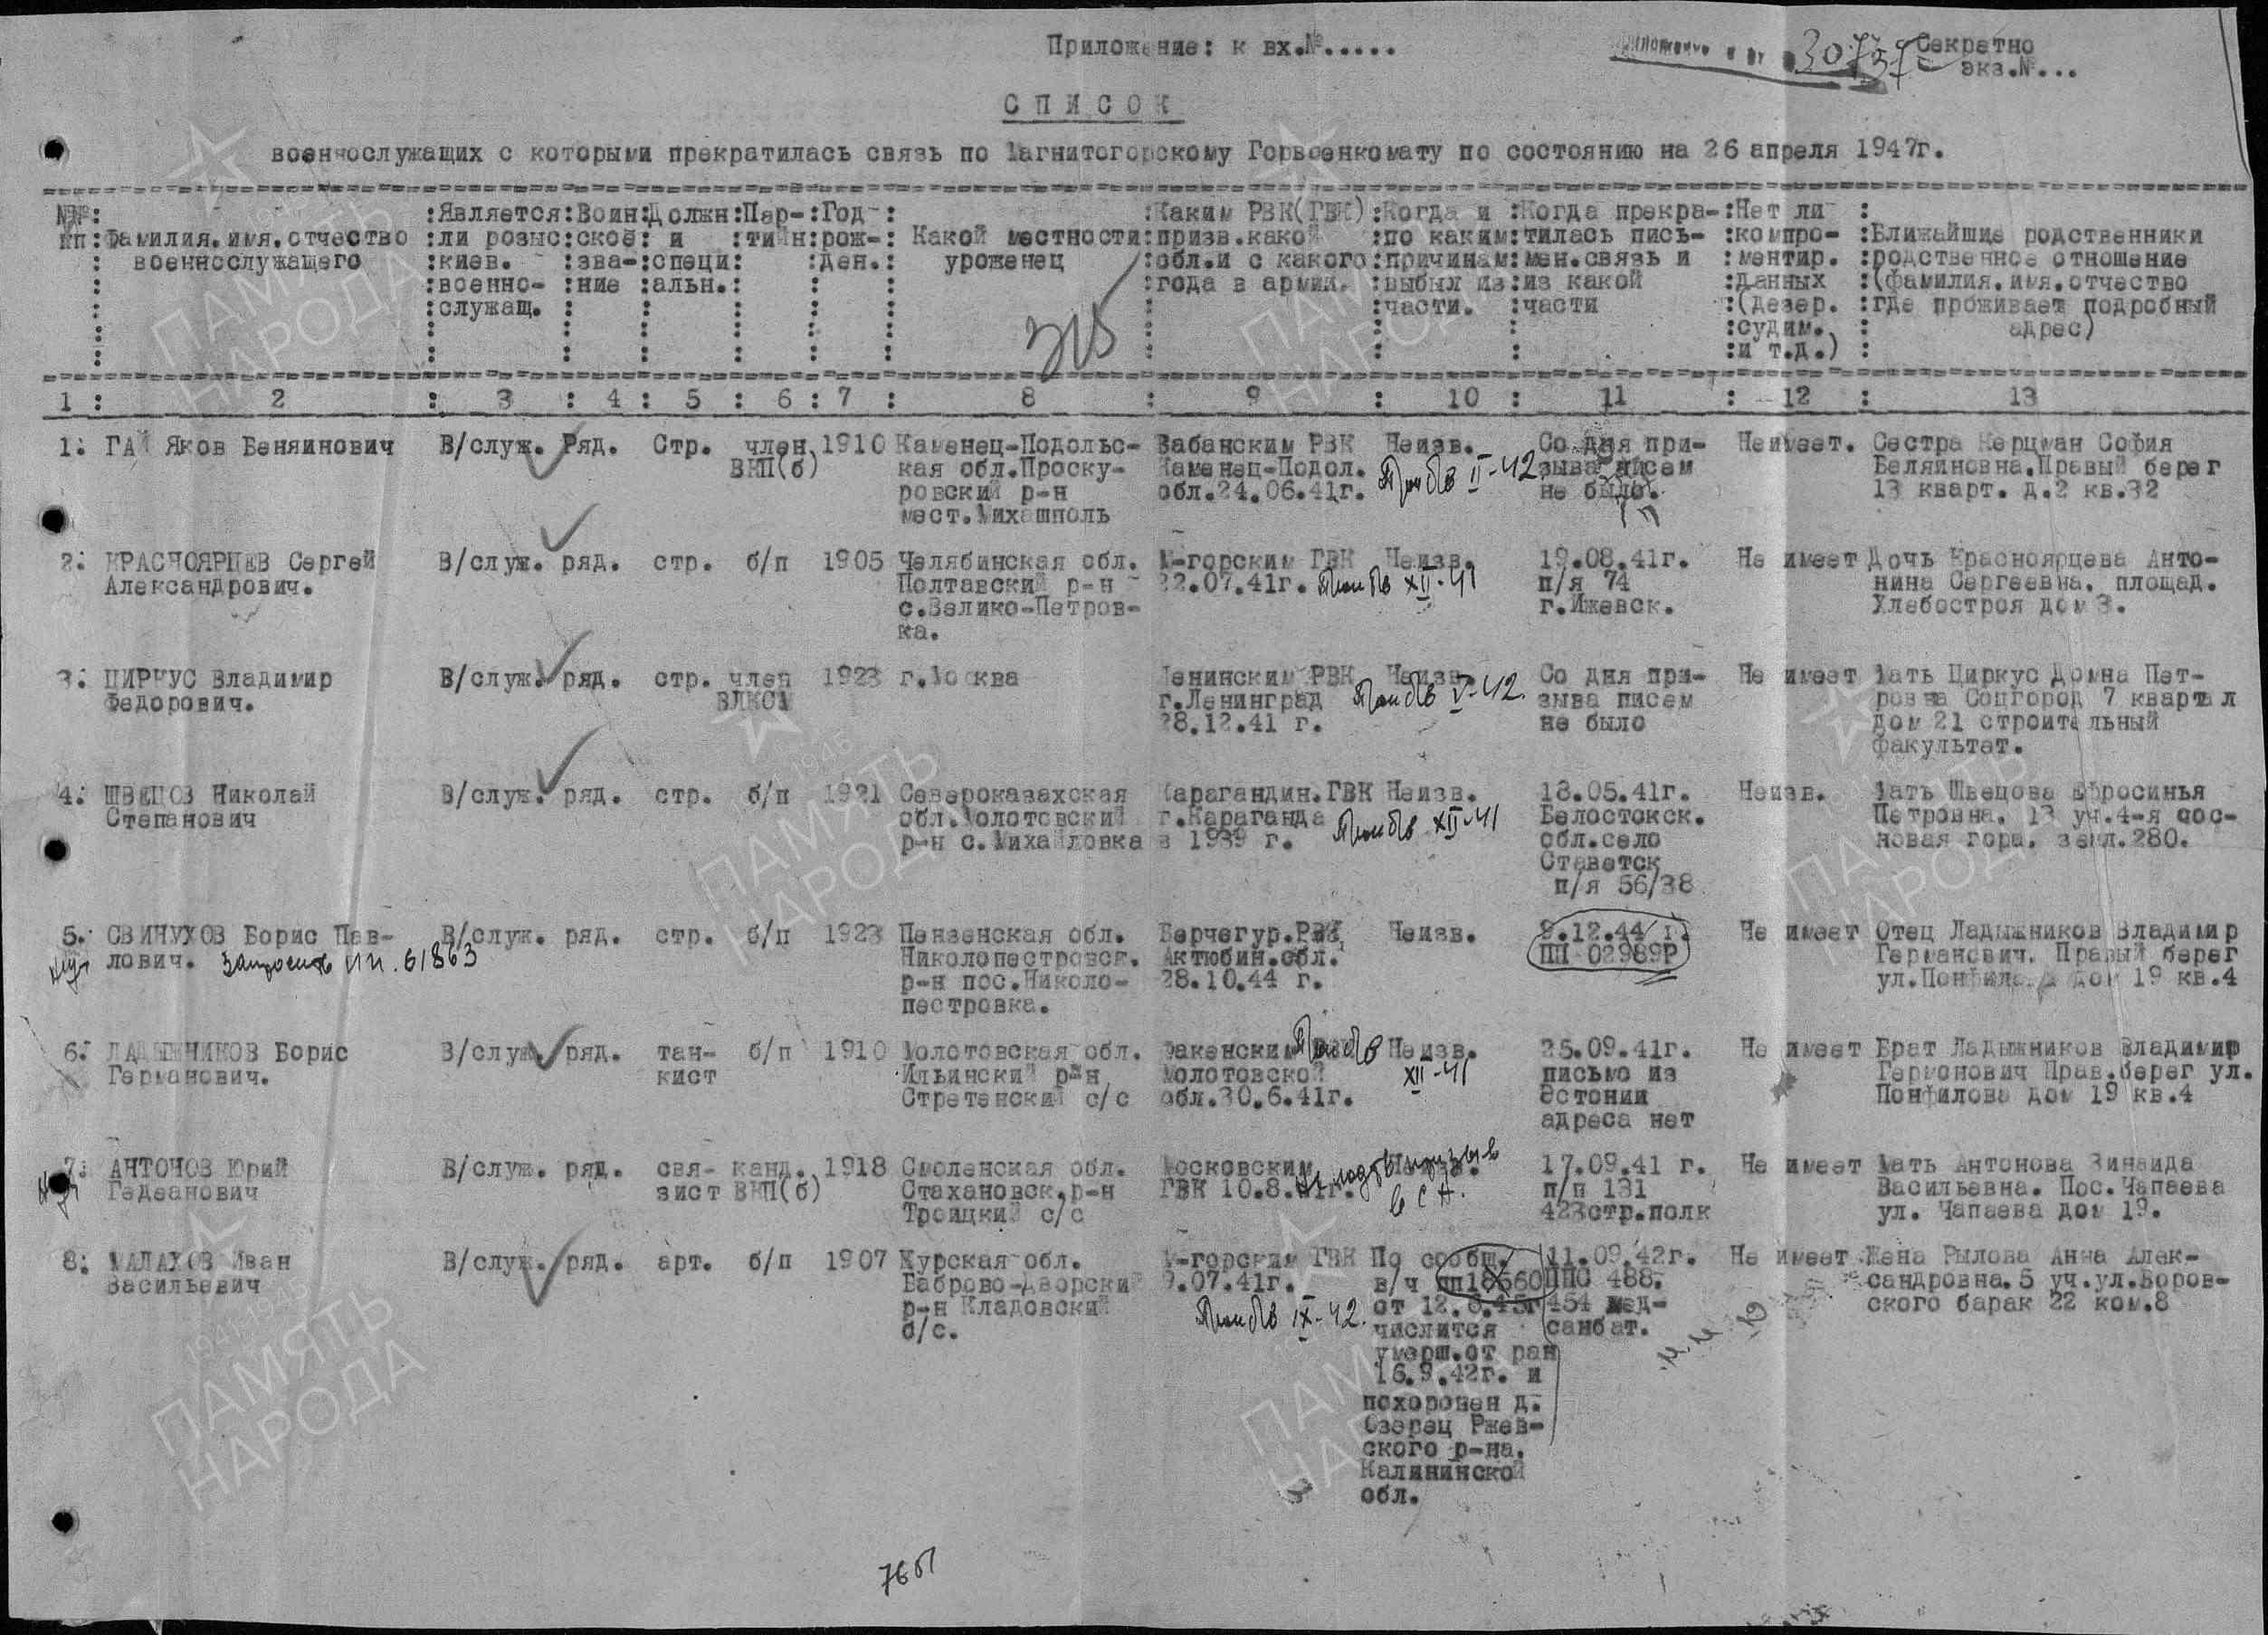 Приложение: к вх.№.....
30737
Секретно
экз.№...
СПИСОК
военнослужащих с которыми прекратилась связь по Магнитогорскому Горвоенкомату по состоянию на 26 апреля 1947г.
№№ пп : Фамилия.имя.отчество военнослужащего : Является ли розыскиев. военнослужащ. : Воинское звание : Должн и специальн. : Партийн : Год рожден. : Какой местности уроженец : Каким РВК(ГВК) призв.какой обл.и с какого года в армии. : Когда и по каким причинам выбыл из части. : Когда прекратилась письмен.связь и из какой части : Нет ли компроментир. данных (дезер. судим. и т.д.) : Ближайшие родственники родственное отношение (фамилия.имя.отчество где проживает подробный адрес)
1 : 2 : 3 : 4 : 5 : 6 : 7 : 8 : 9 : 10 : 11 : 12 : 13
1. ГАЙ Яков Беняинович В/служ. Ряд. Стр. член 1910 Каменец-Подольс- Бабанским РВК Неизв. Со дня при- Неимеет. Сестра Керцман София
ВКП(б) кая обл.Проску- Каменец-Подол. зыва писем Беляиновна.Правый берег
ровский р-н обл.24.06.41г. II-42 не было. 13 кварт. д.2 кв.32
мест.Михашполь
2. КРАСНОЯРЦЕВ Сергей В/служ. ряд. стр. б/п 1905 Челябинская обл. М-горским ГВК Неизв. 19.08.41г. Не имеет Дочь Красноярцева Анто-
Александрович. Полтавский р-н 22.07.41г. XII-41 п/я 74 нина Сергеевна. площад.
с.Велико-Петров- г.Ижевск. Хлебостроя дом 3.
ка.
3. ЦИРКУС Владимир В/служ. ряд. стр. член 1923 г.Москва Ленинским РВК Неизв. Со дня при- Не имеет Мать Циркус Домна Пет-
Федорович. ВЛКСМ г.Ленинград V-42. зыва писем ровна Соцгород 7 квартал
28.12.41 г. не было дом 21 строительный
факультет.
4. ШВЕЦОВ Николай В/служ. ряд. стр. б/п 1921 Североказахская Карагандин.ГВК Неизв. 13.05.41г. Неизв. Мать Швецова Ефросинья
Степанович обл.Молотовский г.Караганда XII-41 Белостокск. Петровна. 13 уч.4-я сос-
р-н с.Михайловка в 1939 г. обл.село новая гора. земл.280.
Ставетск
п/я 56/38
5. СВИНУХОВ Борис Пав- В/служ. ряд. стр. б/п 1923 Пензенская обл. Берчегур.РВК Неизв. 9.12.44 г. Не имеет Отец Ладыжников Владимир
лович. Запросить пп.61863 Николопестровск. Актюбин.обл. ПП 02989Р Германович. Правый берег
р-н пос.Николо- 28.10.44 г. дом 19 кв.4
пестровка.
6. ЛАДЫЖНИКОВ Борис В/служ. ряд. тан- б/п 1910 Молотовская обл. Неизв. 25.09.41г. Не имеет Брат Ладыжников Владимир
Германович. кист Ильинский р-н Молотовской XII-41 письмо из Гермонович Прав.берег ул.
Стретенский с/с обл.30.6.41г. Эстонии Понфилова дом 19 кв.4
адреса нет
7. АНТОНОВ Юрий В/служ. ряд. свя- канд. 1918 Смоленская обл. Московским 17.09.41 г. Не имеет Мать Антонова Зинаида
Гедеанович зист ВКП(б) Стахановск.р-н ГВК 10.8.41г. п/п 131 Васильевна. Пос.Чапаева
Троицкий с/с в СА. 423стр.полк ул. Чапаева дом 19.
8. МАЛАХОВ Иван В/служ. ряд. арт. б/п 1907 Курская обл. М-горским ГВК По сообщ. 11.09.42г. Не имеет Жена Рылова Анна Алек-
Васильевич Баброво-Дворский 9.07.41г. в/ч пп18660 ППС 488. сандровна.5 уч.ул.Боров-
р-н Кладовский IX-42. от 12.6.45г 454 мед- ского барак 22 ком.8
б/с. числится санбат.
умерш.от ран
16.9.42г. и
похоронен д.
Озерец Ржев-
ского р-на.
Калининской
обл.
ПАМЯТЬ НАРОДА
1941-1945